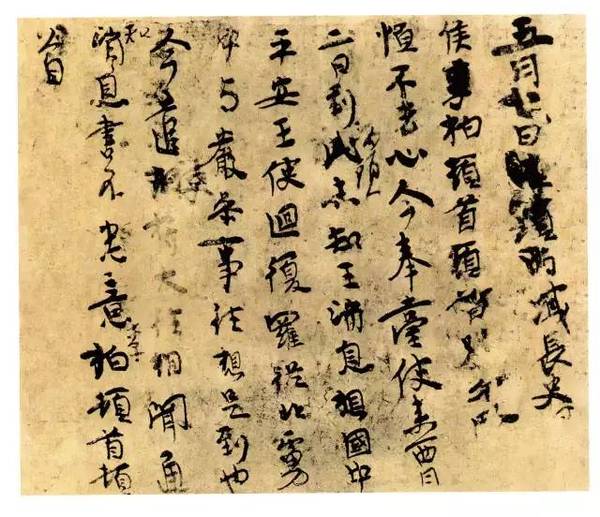 五月七日西域長史
侯李柏頓首頓首別
恒不去心今奉臺使來西月
二日到此海頭未知王消息想國中
平安王使迴復羅從北虜
中與嚴參事往想是到也
今遣使苻大往相聞通
知消息書不悉意李柏頓首頓
首